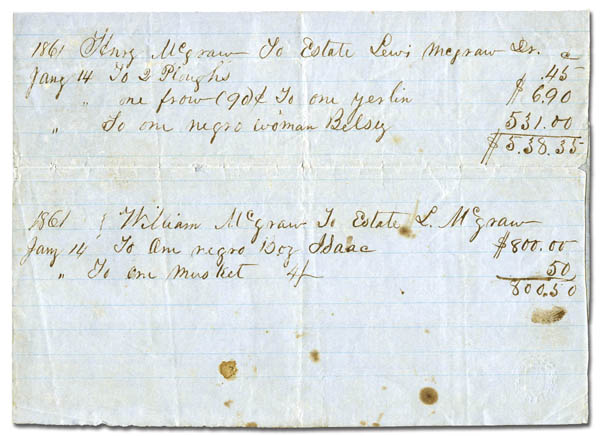 1861 Henry McGraw To Estate Lewis McGraw Dr. c
Jany 14 To 2 Ploughs .45
" one frow (90¢ To one yerlin $6.90
" To one negro woman Betsey 531.00
$538.35
1861 { William McGraw To Estate L. McGraw
Jany 14 To One negro Boy Isaac $800.00
" To one Musket 4/ 50
800.50